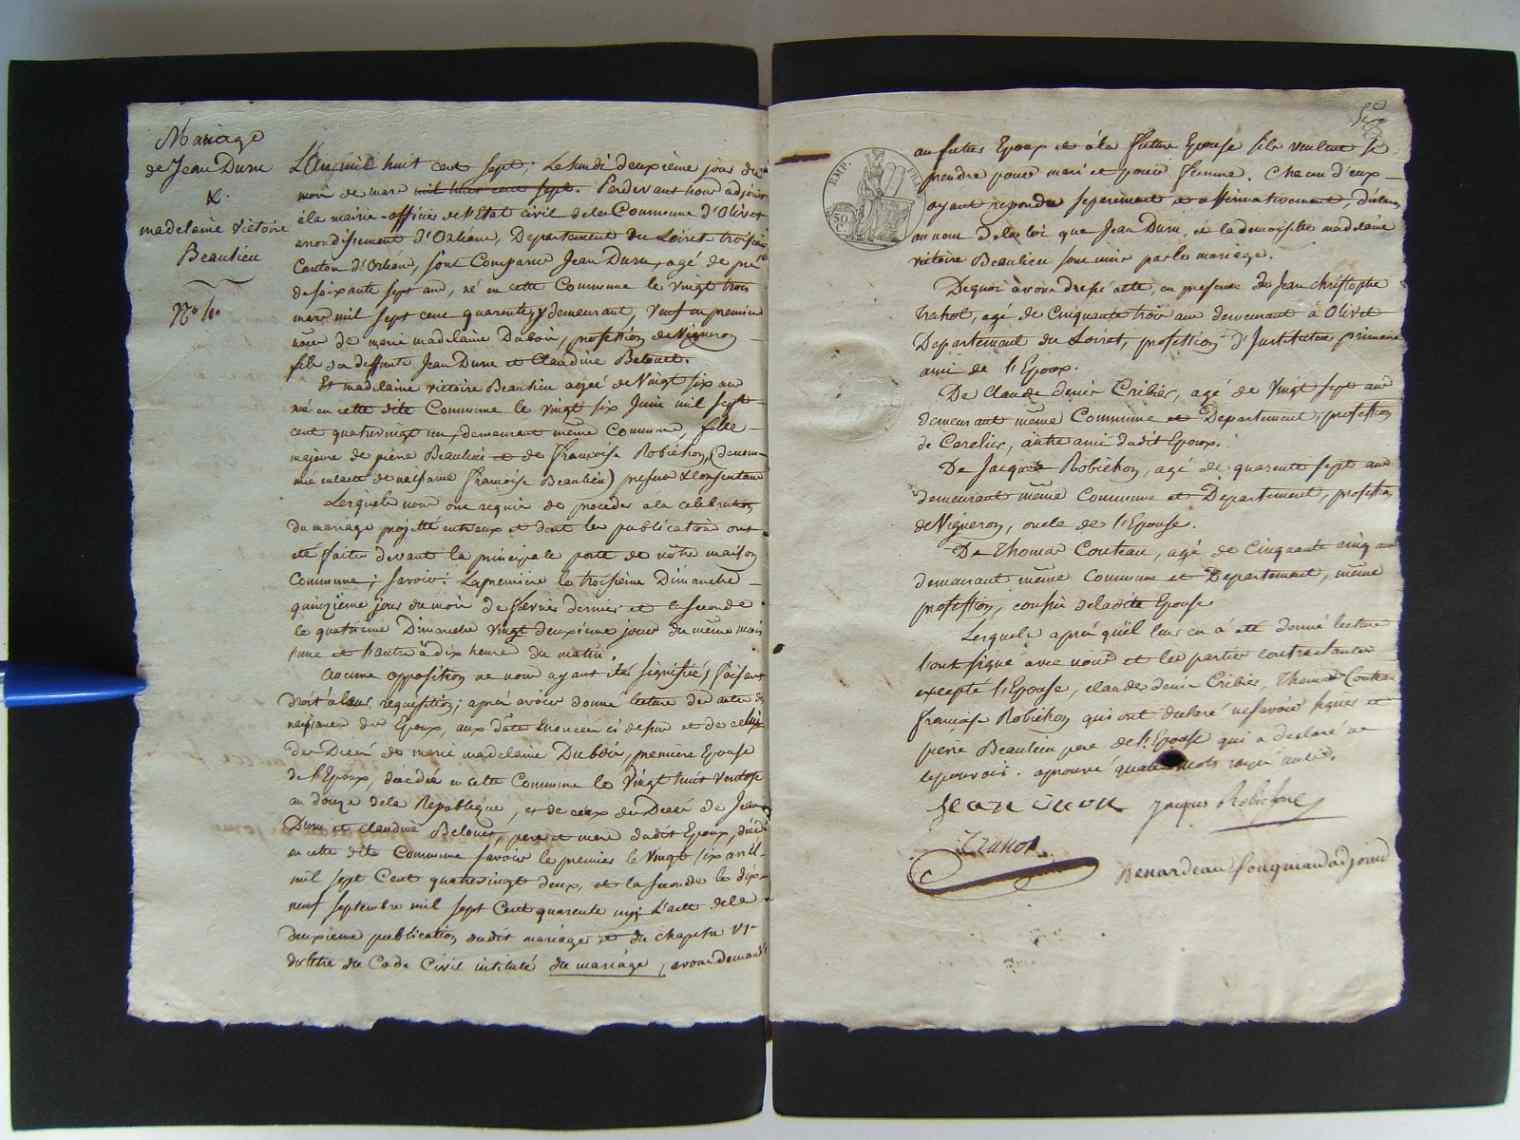 Mariage
de Jean Duru
&.
madelaine victoire
Beaulieu
L'An mil huit cent sept, Le lundi deuxième jour du
mois de mars mil huit cent sept. Pardevant nous adjoint
à la mairie officier de l'Etat civil de la Commune d'Olivet
arrondissement d'Orléans, Departement du Loiret troisieme
Canton d'Orléans, sont Comparus Jean Duru, agé de près
de soixante sept ans, né en cette Commune le vingt trois
mars mil sept cent quarente y demeurant, Veuf en premiere
noce de marie madelaine Dubois, profession de Vigneron
fils des deffunts Jean Duru et Claudine Belouet.
Et madelaine victoire Beaulieu agée de Vingt six ans
né en cette dite Commune le vingt six Juin mil sept
cent quatrevingt un, demeurant même Commune, fille
majeure de pierre Beaulieu et de françoise Robichon, (denom
mée en l'acte de naissance françoise Beaulieu) presens & consentans
Lesquels nous ont requis de proceder a la celebration
du mariage projetté entreux et dont les publications ont
été faites devant la principale porte de nôtre maison
Commune; Savoir: La premiere le troisième Dimanche
quinzième jour du mois de fevrier dernier et la seconde
le quatrieme Dimanche vingt deuxième jour du même mois
l'une et l'autre à dix heures du matin.
Aucune opposition ne nous ayant été signifié; faisant
droit à leur requisition; après avoir donné lecture des actes de
naissance des Epoux, aux dates énoncées ci dessus et de celui
de Decès de marie madelaine Dubois, première Epouse
de l'Epoux, décédée en cette Commune le Vingt huit Ventose
an douze de la Republique, et de ceux du Decès de Jean
Duru et claudine Belouet, pere et mere dudit Epoux, décédés
en cette dite Commune savoir le premier le Vingt six avril
mil sept Cent quatrevingt deux, et la seconde le dix
neuf septembre mil sept Cent quarente L'acte de la
deuxieme publication dudit mariage et du chapitre VI
du titre du Code Civil intitulé du mariage, avons demandé
EMP. FR.
au futur Epoux et à la future Epouse s'ils veulent se
prendre pour mari et pour femme. Chacun d'eux
ayant repondu separément et affirmativement, déclarons
au nom de la loi que Jean Duru, et la demoiselle madelaine
victoire Beaulieu sont unis par le mariage.
Dequoi avons dressé acte, en presence de Jean christophe
Trahot, agé de Cinquante trois ans demeurant à Olivet
Departement du Loiret, profession d'Instituteur primaire
ami de l'Epoux.
De Claude denis Cribier, agé de Vingt sept ans
demeurant même Commune et Departement, profession
de Carelier, autre ami dudit Epoux.
De Jacques Robichon, agé de quarente sept ans
demeurant même Commune et Departement, profession
de Vigneron, oncle de l'Epouse.
De Thomas Couteau, agé de Cinquante cinq ans
demeurant même Commune et Departement, même
profession, cousin de ladite Epouse
Lesquels après qu'il leur en a été donné lecture
l'ont signé avec nous et les parties contractantes
excepté l'Epouse, claude denis Cribier, Thomas Couteau
françoise Robichon qui ont declaré ne savoir signer et
pierre Beaulieu pere de l'Epouse qui a declaré ne
le pouvoir. aprouvé quatre mots rayés nuls.
Jean Duru Jacques Robichon
Trahot
Benardeau fougneau adjoint